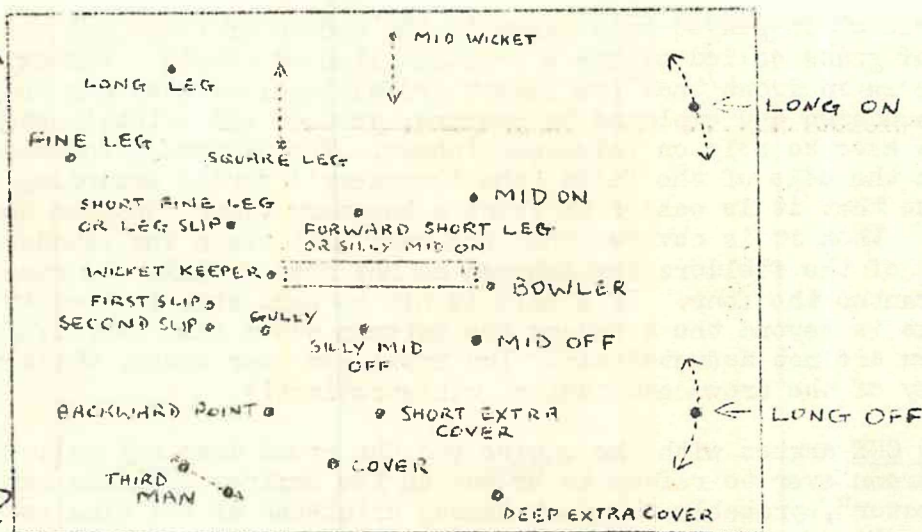 MID WICKET
LONG LEG
LONG ON
FINE LEG
SQUARE LEG
MID ON
SHORT FINE LEG
OR LEG SLIP
FORWARD SHORT LEG
OR SILLY MID ON
WICKET KEEPER
BOWLER
FIRST SLIP
SECOND SLIP
GULLY
SILLY MID
OFF
MID OFF
BACKWARD POINT
SHORT EXTRA
COVER
LONG OFF
COVER
THIRD
MAN
DEEP EXTRA COVER